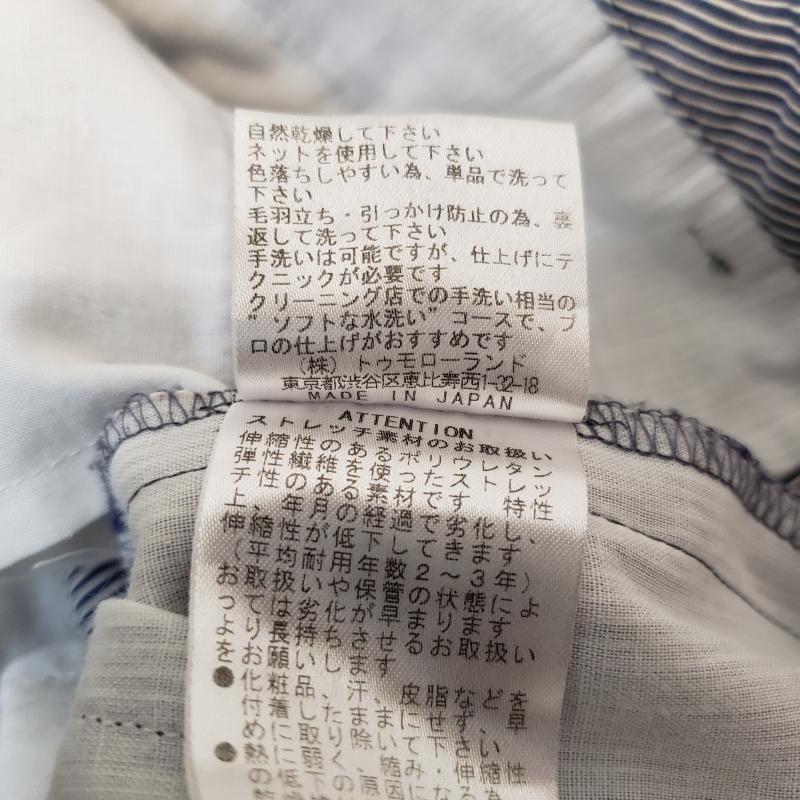 自然乾燥して下さい
ネットを使用して下さい
色落ちしやすい為、単品で洗って
下さい
毛羽立ち・引っかけ防止の為、裏
返して洗って下さい
手洗いは可能ですが、仕上げにテ
クニックが必要です
クリーニング店での手洗い相当の
"ソフトな水洗い"コースで、プ
ロの仕上げがおすすめです
(株)トゥモローランド
東京都渋谷区恵比寿西1-32-18
MADE IN JAPAN
ATTENTION
ストレッチ素材のお取扱い
伸縮性のあるポリウレタン
弾性繊維を使ったストレッ
チ性のある素材です。特性
上、年月の経過で劣化し、
伸縮性が低下してきます
(平均耐用年数2～3年)
お取扱いや保管の状態によ
って劣化が早まります
より長持ちさせるお取扱い
をお願いします
●化粧品、汗、皮脂などを
付着したままにせず、早
めに取り除いて下さい
●熱に弱く、縮み・伸縮性
の低下の原因になる為